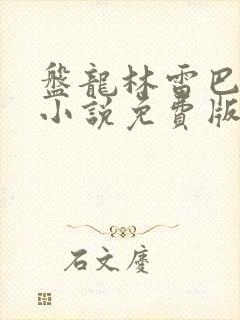 盤龍林雷巴
小說免費版
石文慶